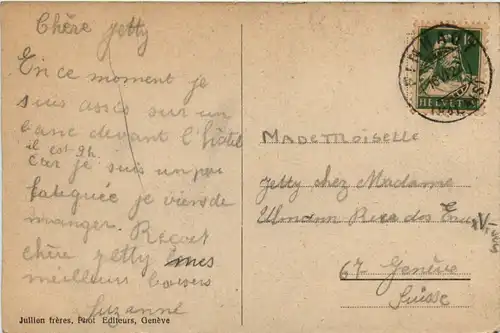 Chère Jetty
En ce moment je
suis assis sur un
banc devant l'hôtel
il est 9h.
car je suis un peu
fatiguée je viens de
manger. Reçoit
chère Jetty mes
meilleur baisers
Suzanne
Jullien frères, Phot Editeurs, Genève
HELVETIA
MADEMOISELLE
Jetty chez Madame
Ulmann Rue des Eaux-Vives
67 Genève
Suisse